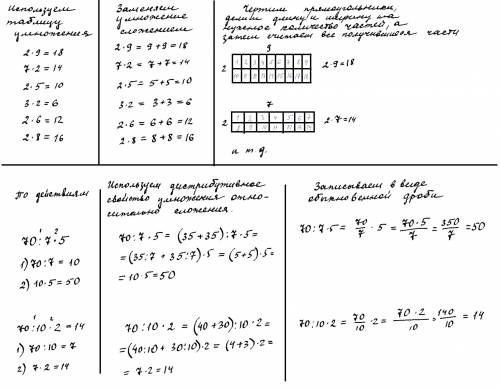 Используем
таблицу
умножения
2·9 = 18
7·2 = 14
2·5 = 10
3·2 = 6
2·6 = 12
2·8 = 16
Заменяем
умножение
сложением
2·9 = 9+9=18
7·2 = 7+7=14
2·5 = 5+5=10
3·2 = 3+3=6
2·6 = 6+6=12
2·8 = 8+8=16
Чертим прямоугольник,
делим длину и ширину на
нужное количество частей, а
затем считаем все получившиеся части
9
2
1 2 3 4 5 6 7 8 9
10 11 12 13 14 15 16 17 18
2·9=18
7
2
1 2 3 4 5 6 7
8 9 10 11 12 13 14
2·7=14
и т.д.
По действиям
1 2
70:7·5
1) 70:7 = 10
2) 10·5=50
1 2
70:10·2=14
1) 70:10=7
2) 7·2=14
Используем дистрибутивное
свойство умножения отно-
сительно сложения.
70:7·5 = (35+35):7·5=
=(35:7+35:7)·5=(5+5)·5=
=10·5=50
70:10·2=(40+30):10·2=
=(40:10+30:10)·2=(4+3)·2=
=7·2=14
Записываем в виде
обыкновенной дроби
70:7·5= 70/7 ·5 = 70·5/7 = 350/7 =50
70:10·2= 70/10 ·2= 70·2/10 = 140/10 = 14